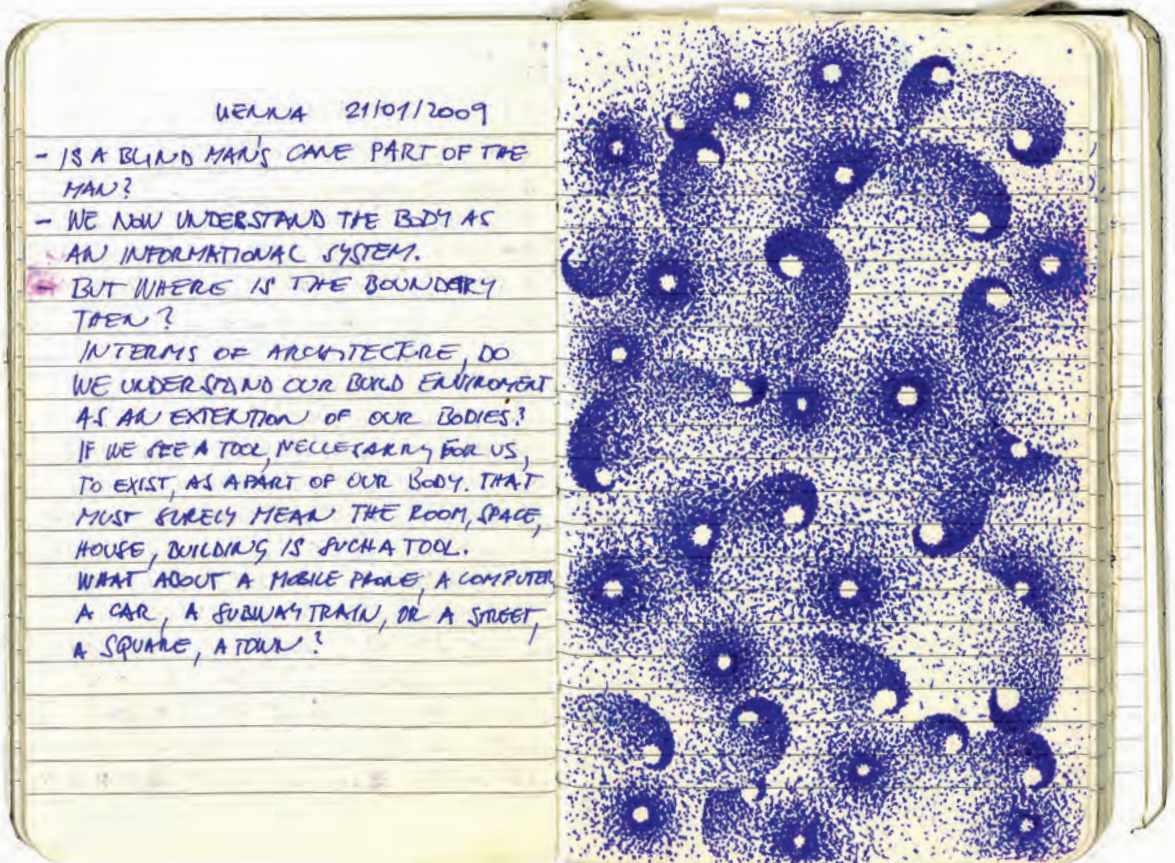 VIENNA 21/01/2009
- IS A BLIND MAN'S CANE PART OF THE
MAN?
- WE NOW UNDERSTAND THE BODY AS
AN INFORMATIONAL SYSTEM.
- BUT WHERE IS THE BOUNDERY
THEN?
IN TERMS OF ARCHITECTURE, DO
WE UNDERSTAND OUR BUILD ENVIROMENT
AS AN EXTENTION OF OUR BODIES?
IF WE SEE A TOOL, NECCESARRY FOR US,
TO EXIST, AS A PART OF OUR BODY. THAT
MUST SURELY MEAN THE ROOM, SPACE,
HOUSE, BUILDING IS SUCH A TOOL.
WHAT ABOUT A MOBILE PHONE, A COMPUTER,
A CAR, A SUBWAY TRAIN, OR A STREET,
A SQUARE, A TOWN?